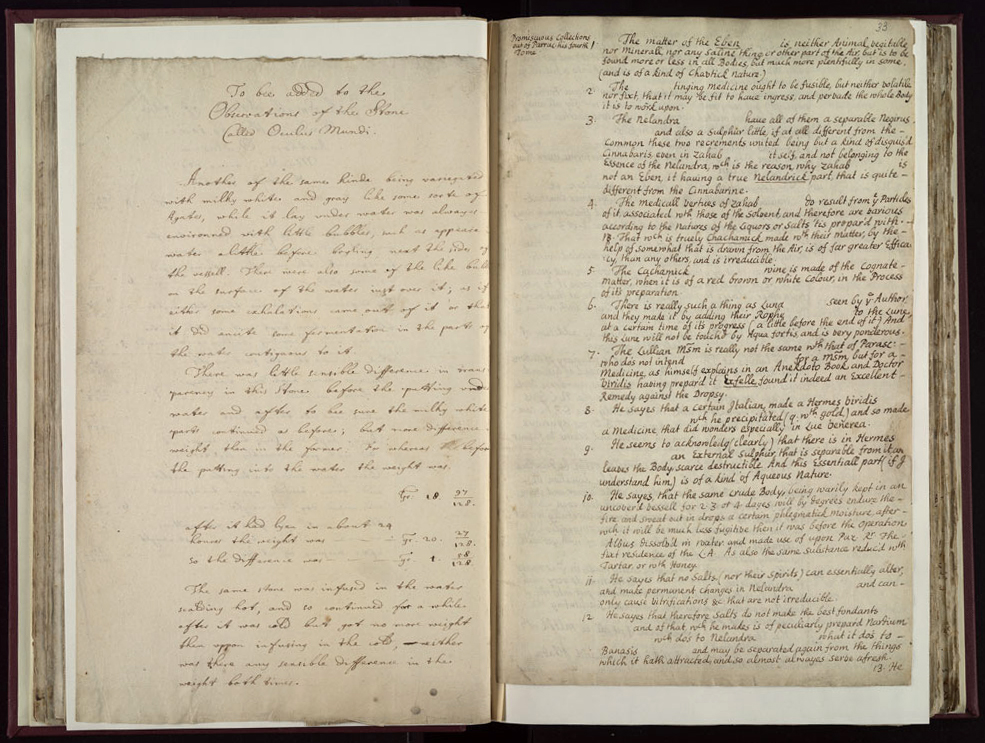 To bee added to the
Observations of the Stone
Called Oculus Mundi.
Another of the same kinde being variegated
with milky white and gray like some sorts of
Agates, while it lay under water was alwayes
environed with little bubbles, such as appeare
water a little before boyling neer the sides of
the vessell. There were also some of the like bub
on the surface of the water just over it; as if
either some exhalations came out of it or tha
it did excite some fermentation in the parts of
the water contiguous to it.
There was little sensible difference in trans
parency in this Stone before the putting under
water and after to bee sure the milky white
parts continued as before; but more difference
weight, then in the former. For whereas before
the putting into the water the weight was.
Gr. 18 97/128.
after it had lyen in about 24
houres the weight was Gr. 20. 27/128.
so the difference was Gr. 1. 58/128.
The same stone was infused in the water
scalding hot, and so continued for a while
after it was cold but got no more weight
then uppon infusing in the cold, neither
was there any sensible difference in the
weight both times.
33
Promiscuous Collections
out of Parrac: his fourth
Tome
The matter of the Eben is neither Animal, vegitable,
nor Minerall, nor any saline thing or other part of the Air, but is to be
found more or less in all Bodies, but much more plentifully in some,
(and is of a kind of Chaotick Nature.)
2 The tinging medicine ought to be fusible, but neither volatile
nor fixt, that it may be fit to have ingress, and pervade the whole Body
it is to work upon.
3. The Nelandra have all of them a separable Negirus
and also a Sulphur little, if at all different from the -
Common these two recrements united being but a kind of disguis'd
Cinnabaris even in Zahab it self, and not belonging to the
Essence of the Nelandra, wch is the reason why Zahab is
not an Eben, it having a true Nelandrick part, that is quite -
different from the Cinnabarine.
4. The medicall vertues of Zahab do result from ye Particles
of it associated wth those of the Solvent, and therefore are various
according to the natures of the Liquors or Salts 'tis prepar'd with. -
That wch is truely Chachamick made wth their matter, by the -
help of somewhat that is drawn from the Air, is of far greater Effica
cy, than any others, and is irreducible.
5 The Cachamick wine is made of the Cognate -
matter, when it is of a red brown or white Colour, in the Process
of its preparation.
6. There is really such a thing as Luna seen by ye Author,
and they make it by adding their Rophe to the Luna,
at a certain time of its progress (a little before the end of it) And
this Lune will not be touch'd by Aqua fortis, and is very ponderous.
7. The Lullian Msm is really not the same wth that of Parasc: -
who dos not intend for a Msm, but for a -
Medicine, as himself explains in an Anekdoto Book, and Doctor
Viridis having prepar'd it Exfelle, found it indeed an Excellent -
Remedy against the Dropsy.
8. He sayes that a certain Italian, made a Hermes Viridis
wch he precipitated (q. wth gold.) and so made
a Medicine that did wonders especially in Lue Venerea.
9. He seems to acknowledg (clearly) that there is in Hermes
an External Sulphur, that is separable from it and
leaves the Body scarce destructible. And this Essentiall part (if I
understand him) is of a kind of Aqueous Nature.
10. He sayes, that the same crude Body, being warily kept in an
uncover'd vessell for 2 3 or 4 dayes, will by degrees endure the -
fire and sweat out in drops a certain phlegmatick moisture, after -
wch it will be much less fugitive then it was before the Operation
Albus dissolv'd in water and made use of upon Par. The -
fixt residence of the L.A. As also the same Substance reduc'd wth
Tartar, or wth Honey.
11. He sayes that no Salts (nor their Spirits) can essentially alter,
and made permanent Changes in Nelandra and can -
only cause vitrifications &c that are not irreducible.
12 He sayes that therefore Salts do not make the best fondants
and of that wch he makes is of peculiarly prepar'd Nartium
wch dos to Nelandra what it dos to -
Banasis and may be separated again from the things
which it hath attracted, and so almost alwayes serve afresh.
13. He